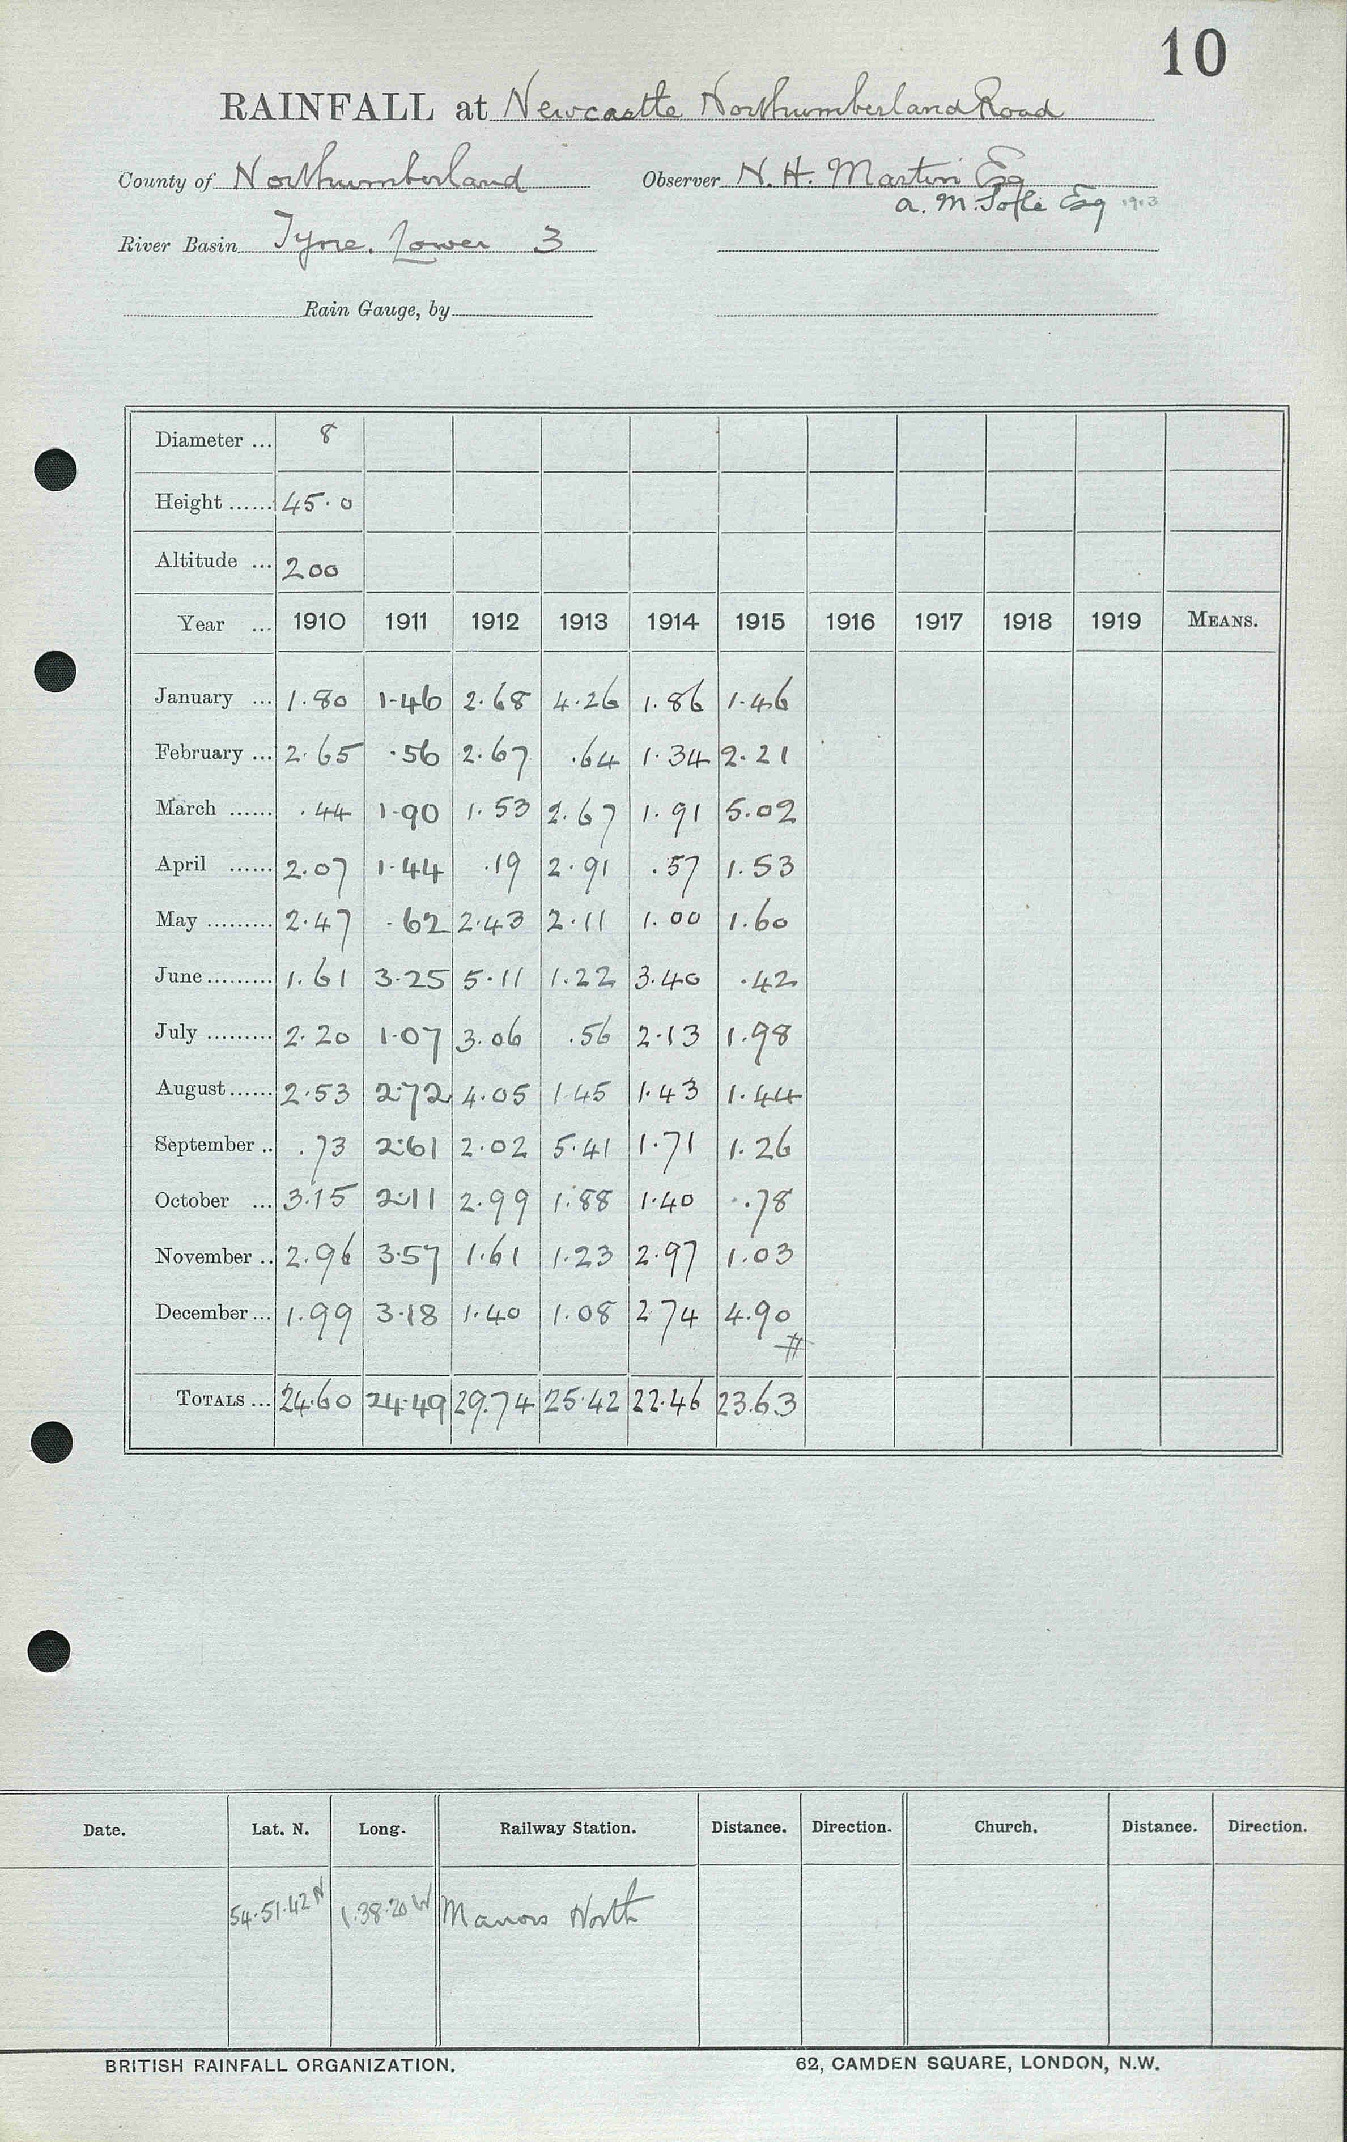 10
RAINFALL at Newcastle Northumberland Road
County of Northumberland Observer N. H. Martin Esq
a. M. Esq 1913
River Basin Tyne. Lower 3
Rain Gauge, by
Diameter ... 8
Height ...... 45.0
Altitude ... 200
Year ... 1910 1911 1912 1913 1914 1915 1916 1917 1918 1919 MEANS.
January ... 1.80 1.46 2.68 4.26 1.86 1.46
February ... 2.65 .56 2.67 .64 1.34 2.21
March ...... .44 1.90 1.53 2.67 1.91 5.02
April ...... 2.07 1.44 .19 2.91 .57 1.53
May ......... 2.47 .62 2.43 2.11 1.00 1.60
June ......... 1.61 3.25 5.11 1.22 3.40 .42
July ......... 2.20 1.07 3.06 .56 2.13 1.98
August ...... 2.53 2.72 4.05 1.45 1.43 1.44
September .. .73 2.61 2.02 5.41 1.71 1.26
October ... 3.15 2.11 2.99 1.88 1.40 .78
November .. 2.96 3.57 1.61 1.23 2.97 1.03
December ... 1.99 3.18 1.40 1.08 2.74 4.90
#
TOTALS ... 24.60 24.49 29.74 25.42 22.46 23.63
Date. Lat. N. Long. Railway Station. Distance. Direction. Church. Distance. Direction.
54.51.42 N 1.38.20 W Manors North
BRITISH RAINFALL ORGANIZATION. 62, CAMDEN SQUARE, LONDON, N.W.